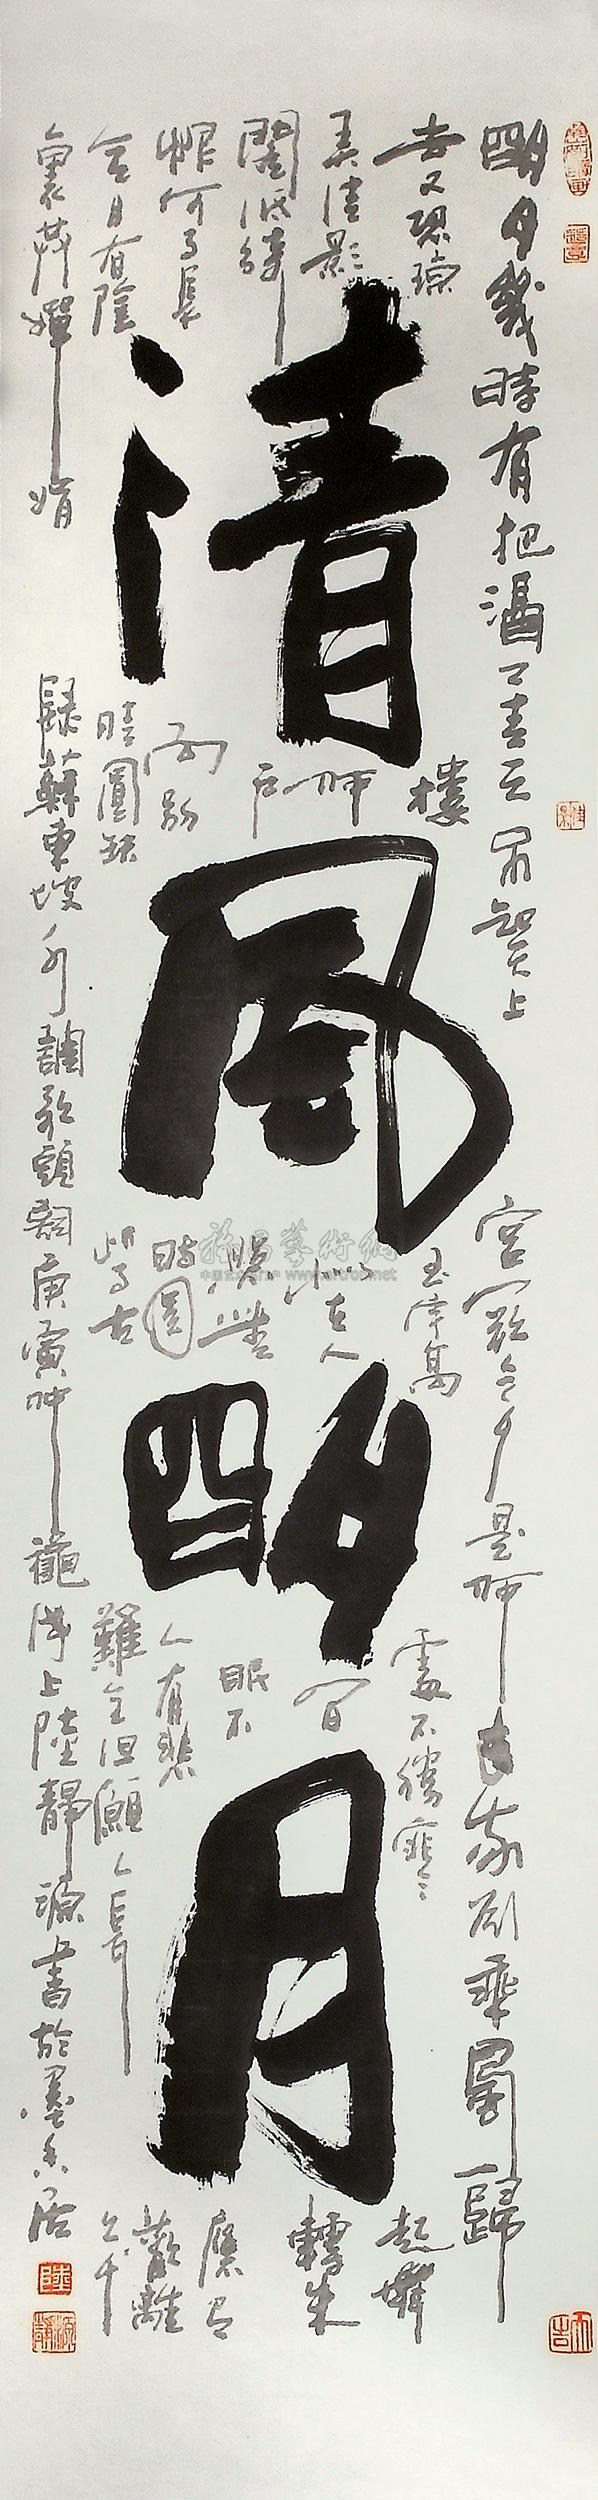 清風明月
明月幾時有把酒問青天不知天上宮闕今夕是何年我欲乘風歸
去又恐瓊樓玉宇高處不勝寒起舞
弄清影何似在人間轉朱
閣低綺戶照無眠不應有
恨何事長向別時圓人有悲歡離
合月有陰晴圓缺此事古難全但願人長久千
里共嬋娟
錄蘇東坡水調歌頭詞庚寅仲龝海上陸靜源書於墨香居
雅昌藝術網